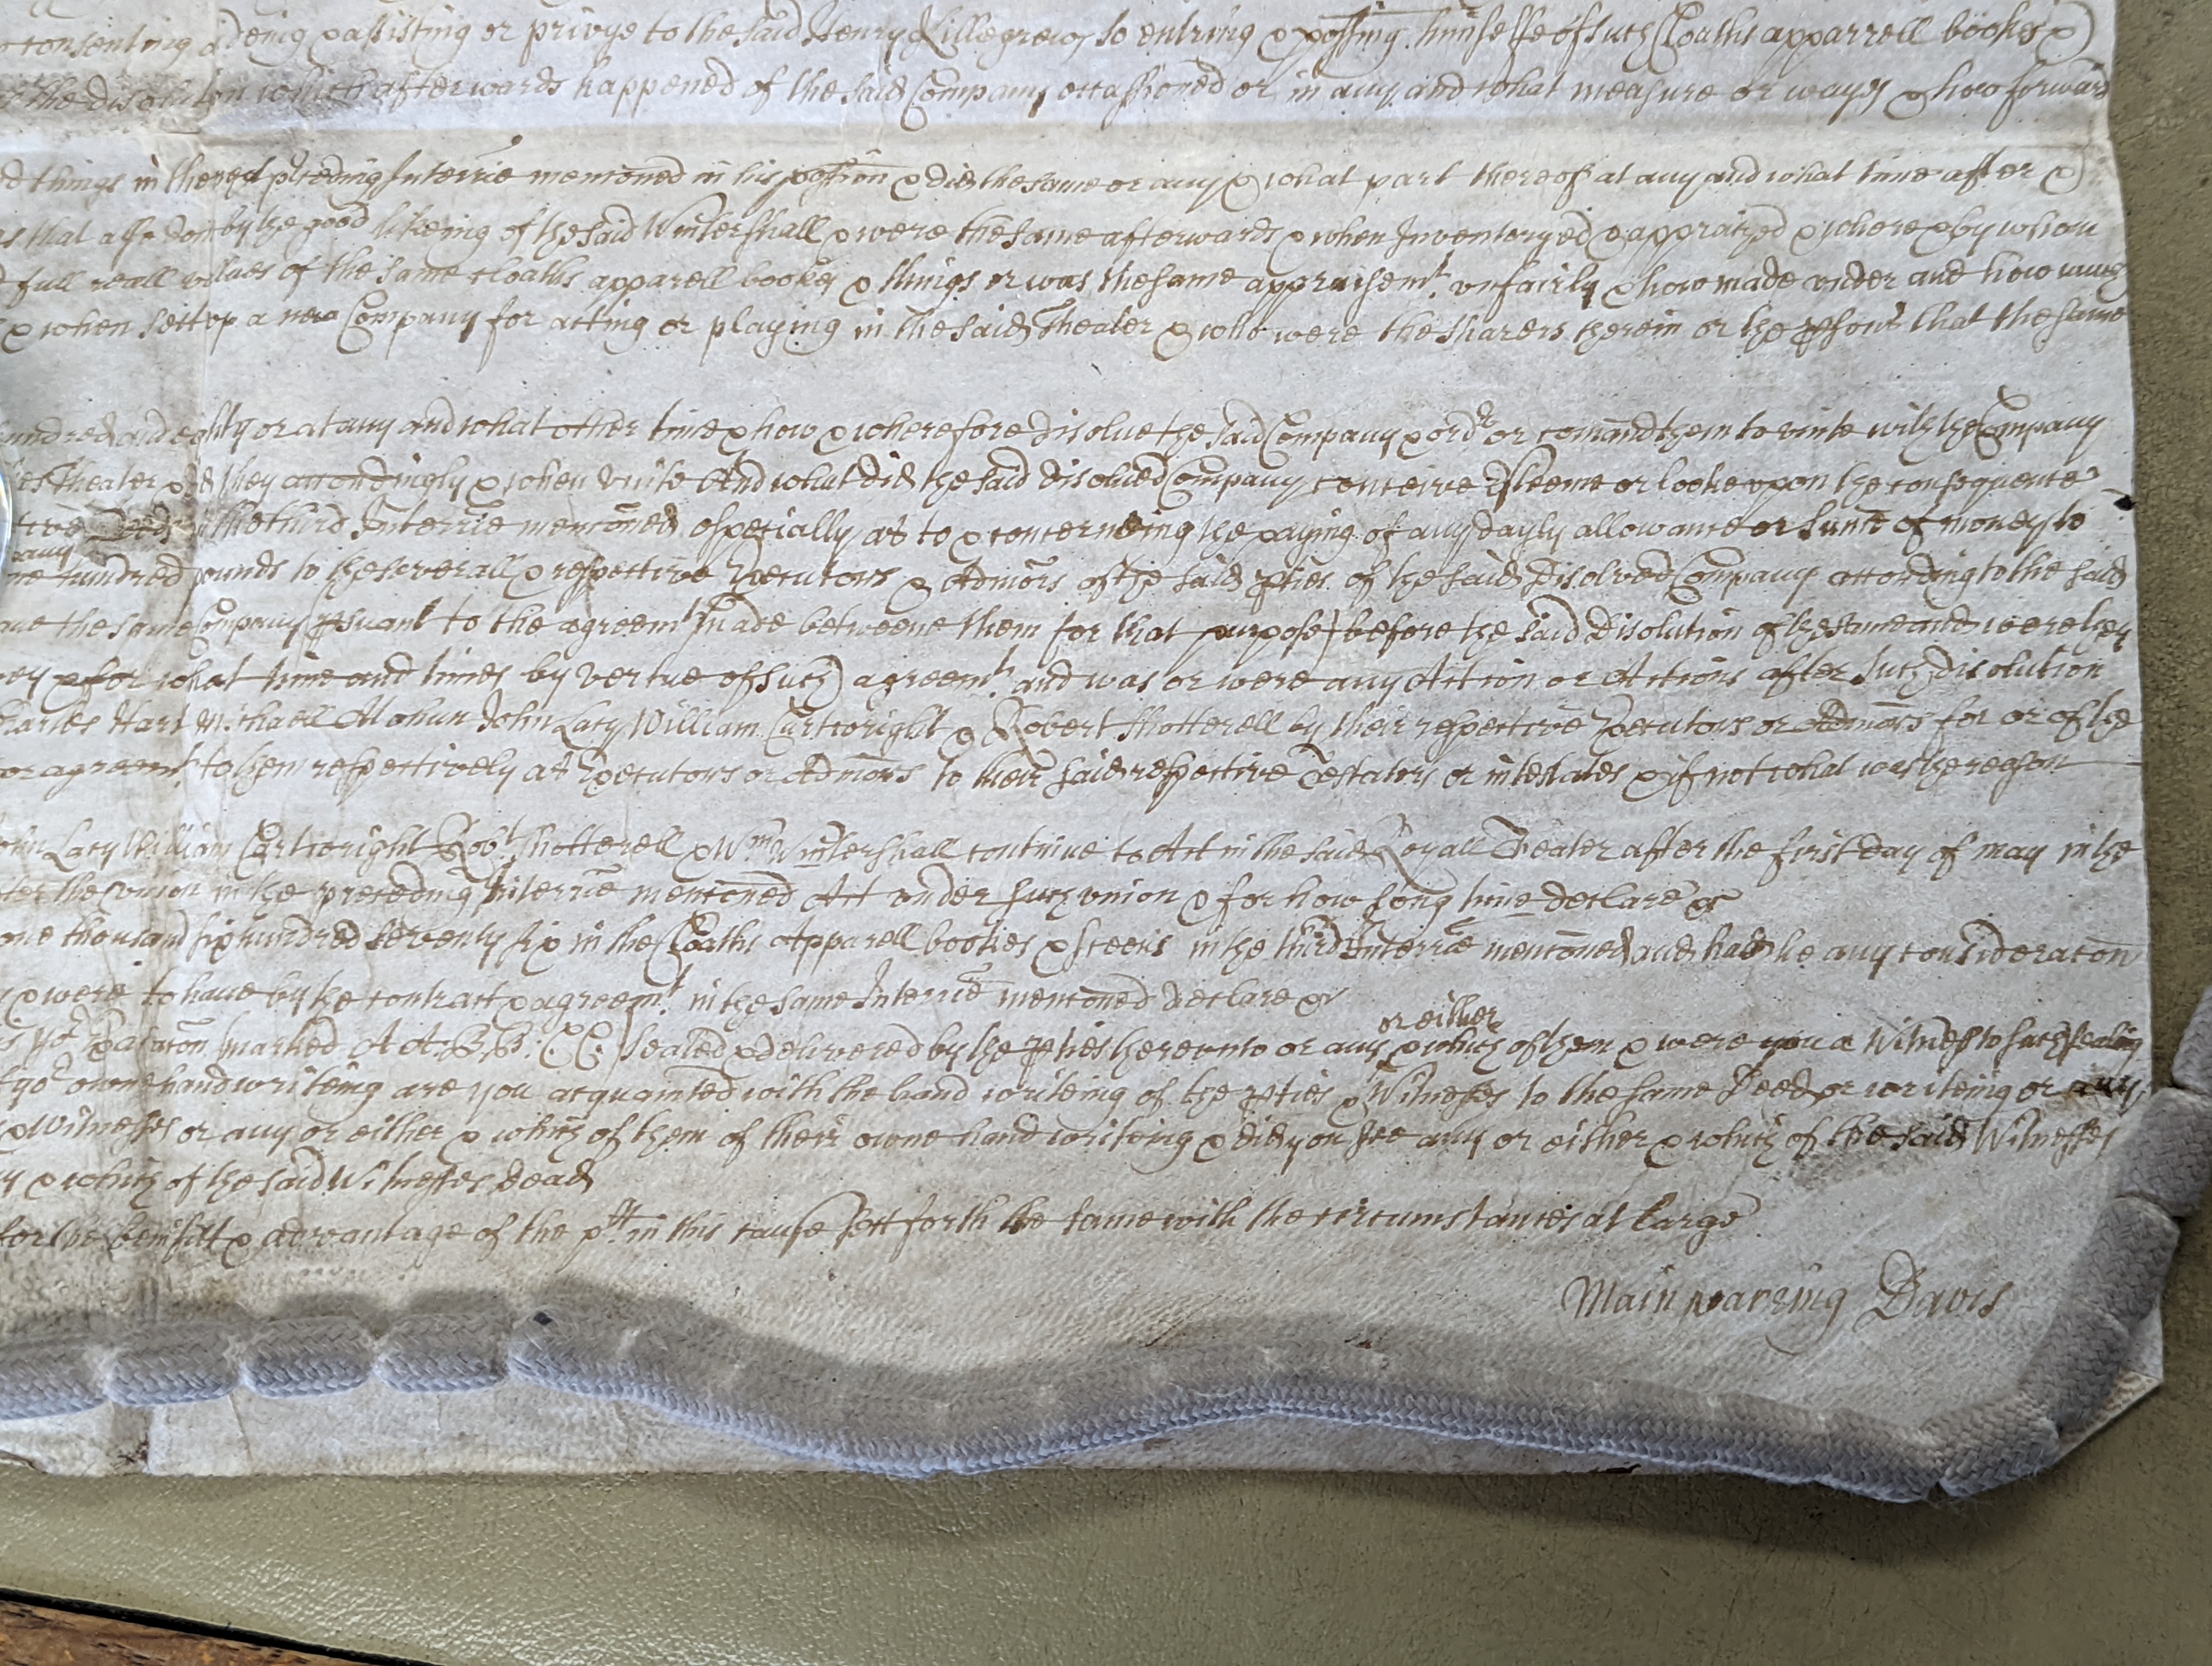 consenting aideing & assisting or privye to the said Henry Killegrew so entring & possing himselfe of such Cloaths apparrell bookes &
the disolution which afterwards happened of the said Company occassioned or in any and what measure or wayes & how forward
things in the next p'ceding Interrie mentoned in his possion & did the same or any & what part thereof at any and what time after &
that afterdon by the good likeing of the said Wintershall & were the same afterwards & when Inventoryed & appraized & where & by whom
full reall values of the same cloaths apparell bookes & things or was the same appraisemt. unfairly & how made under and how much
& when sett up a new Company for acting or playing in the said Theater & who were the sharers therein or the psons that the same
hundred and eighty or at any and what other time & how & wherefore disolve the said Company & ordr or comand them to unite with the Company
Theater & did they accordingly & when unite And what did the said disolved Company conceive Esteeme or looke upon the consequence
Deeds in the third Interrie mentoned especially as to & concerneing the paying of any dayly allowance or sume of money to
any
hundred pounds to the severall & respective Executors & Admors of the said pties of the said disolved Company according to the said
the same Company psuant to the agreemt made betweene them for that purpose) before the said disolution of the same and were they
& for what time and times by vertue of such agreemt. and was or were any Action or Actions after such disolution
Charles Hart Michaell Mohun John Lacy William Cartwright & Robert Shotterell by their respective Executors or Admors for or of the
or agreemt. to them respectively as Executors or Admors to their said respective Testators or intestates & if not what was the reason
John Lacy William Cartwright Robt. Shotterell & Wm Wintershall continue to Act in the said Royall Theater after the first day of may in the
after the union in the preceding Interrie mentoned Act under such union & for how long time declare &c
one thousand six hundred seventy six in the Cloaths Apparell bookes & sceens in the third Interrie mentoned and had he any consideraton
& were to have by the contract & agreemt. in the same Interrie mentoned declare &c
or either
marked AA. BB: CC. sealed & delivered by the pties thereunto or any & which of them & were you a Witness to such sealing
yor owne handwriteing are you acquainted with the hand writeing of the pties & Witnesses to the same Deed or writeing or any
& Witnesses or any or either & which of them of their owne hand writeing & did you see any or either & which of the said Witnesses
& which of the said Witnesses dead
for the benifitt & advantage of the plt. in this cause sett forth the same with the circumstances at large
Mainwaring Davis